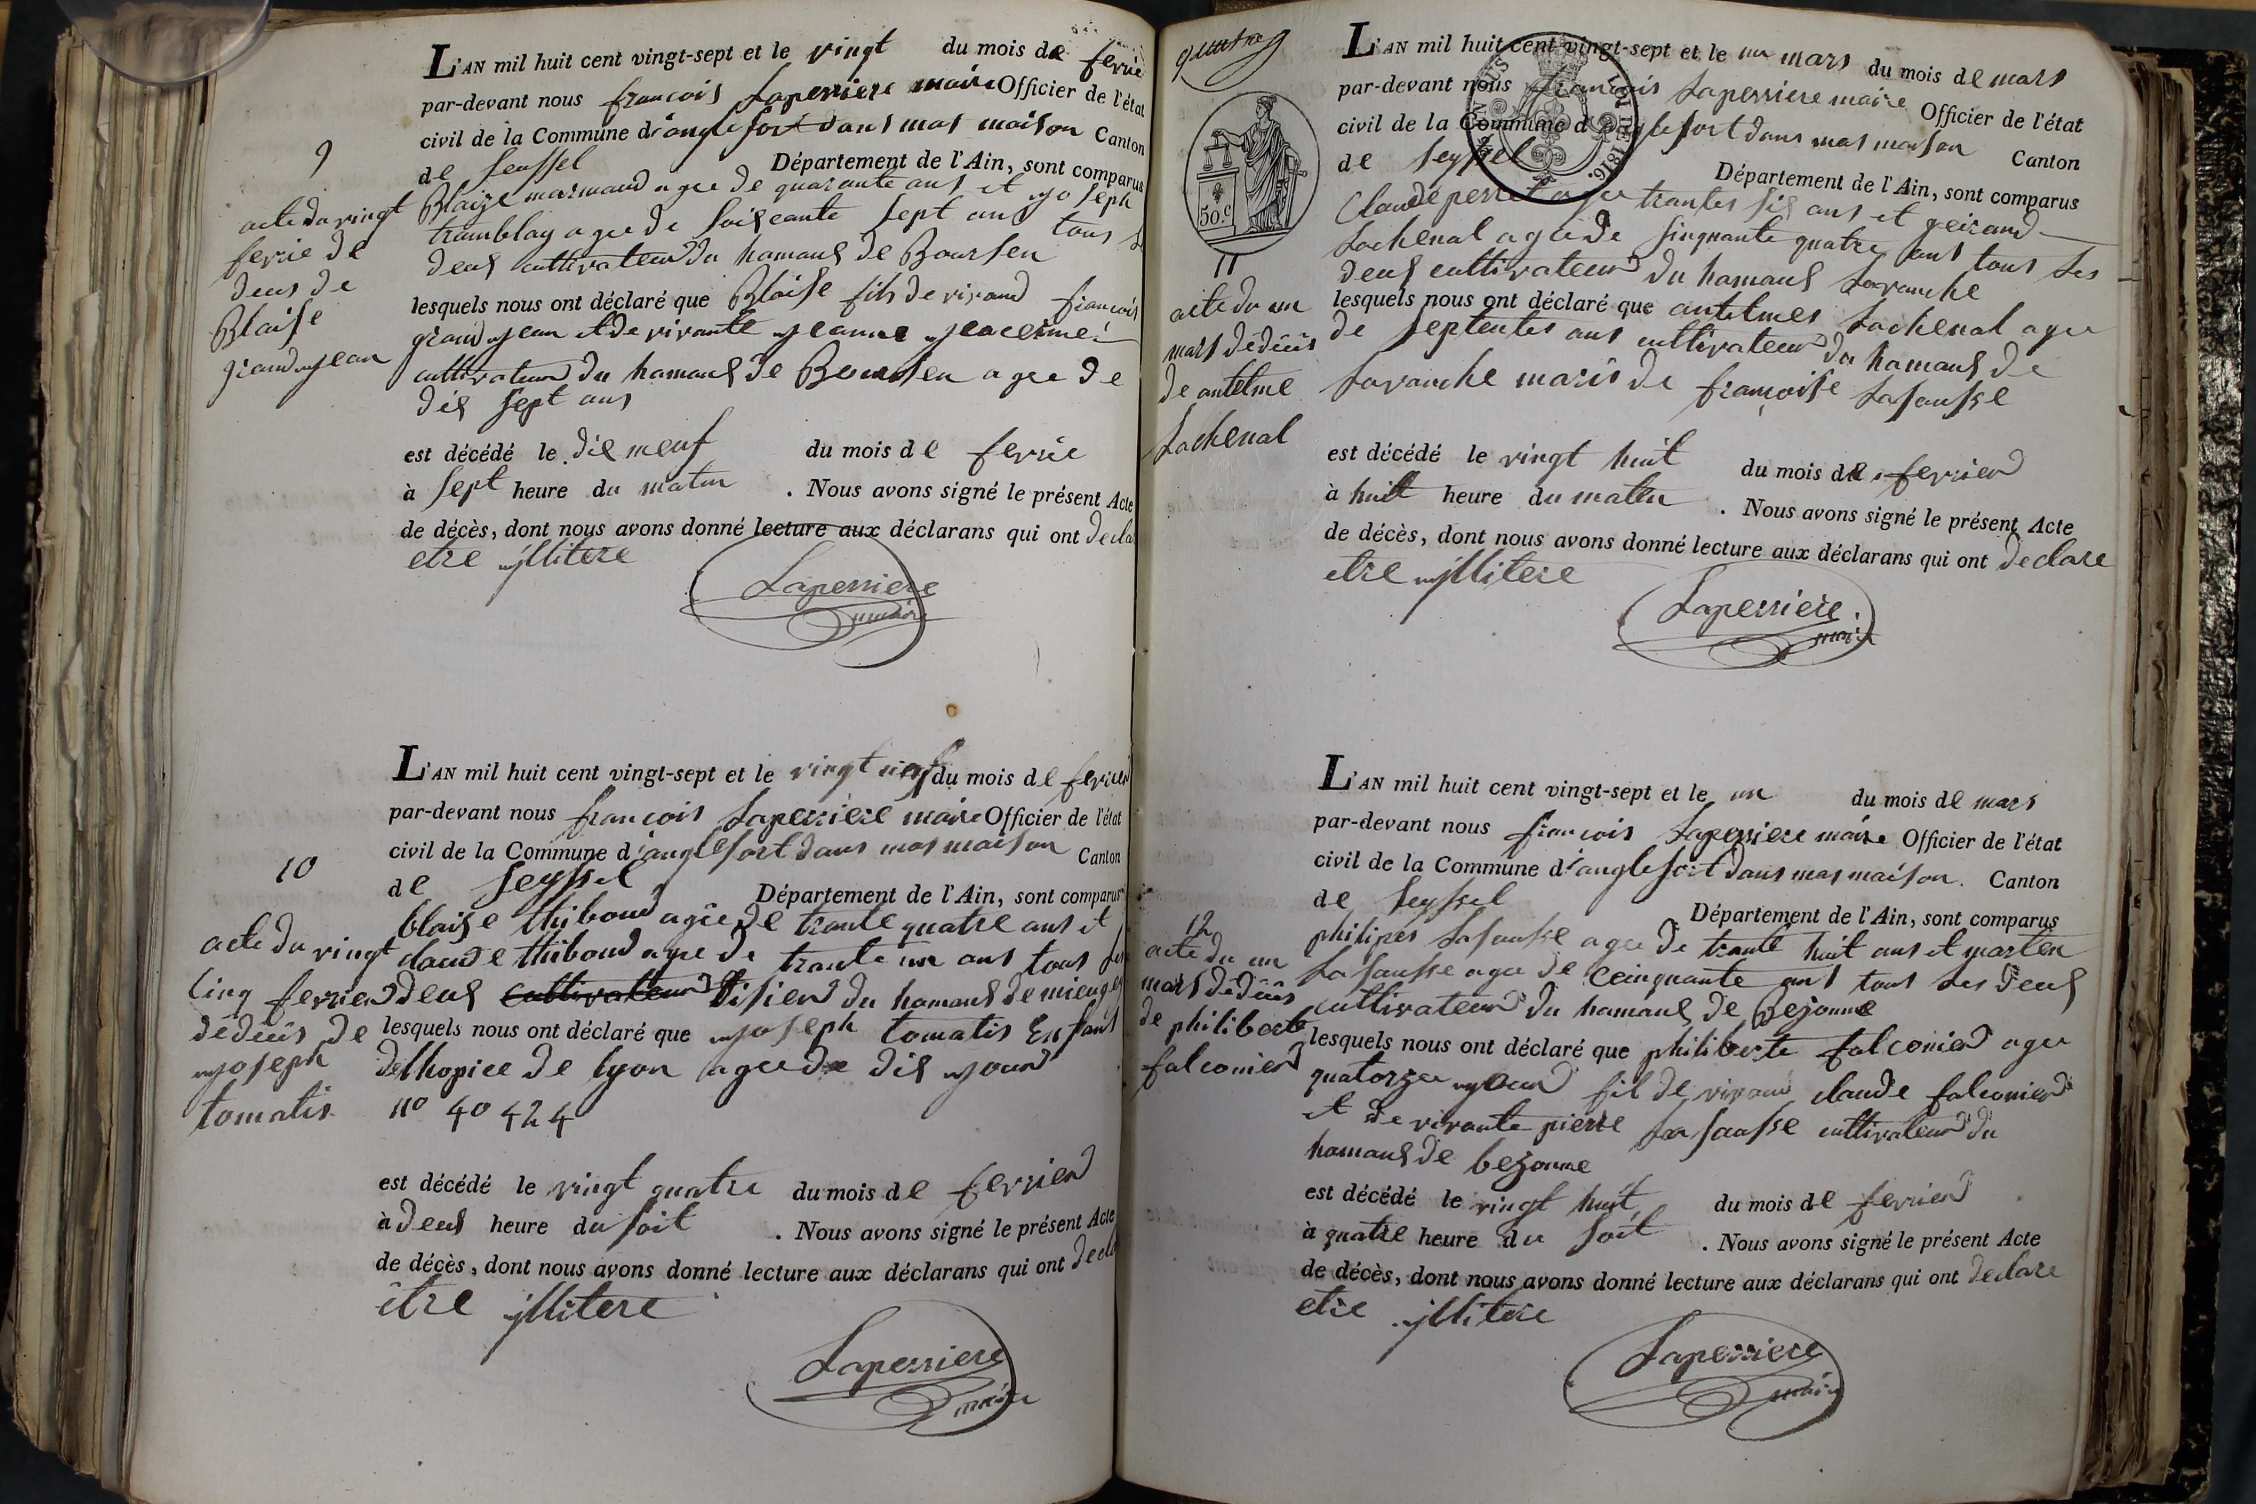 9
acte du vingt
ferrie de
deus de
Blaise
grand jean
L'AN mil huit cent vingt-sept et le vingt du mois de ferrie
par-devant nous francois Laperriere maire Officier de l'état
civil de la Commune d'anglefort dans mas maison Canton
de Seussel Département de l'Ain, sont comparus
Blaize marmand agee de quarante ans et joseph
tramblay agee de soiseante sept ans tous
deus cultivateur du hamaus de Boursen
lesquels nous ont déclaré que Blaise fils de vivand francois
grand jean et de vivante jeanne
cultivateur du hamaus de Boursen agee de
dis sept ans
est décédé le dis neuf du mois de ferrie
à sept heure du matin . Nous avons signé le présent Acte
de décès, dont nous avons donné lecture aux déclarans qui ont decla
etre jllitere
Laperriere
maire
10
acte du vingt
cinq ferrier
dédeüs de
joseph
tomatis
L'AN mil huit cent vingt-sept et le vingt du mois de ferrier
par-devant nous francois Laperriere maire Officier de l'état
civil de la Commune d'anglefort dans mas maison Canton
de Seyssel Département de l'Ain, sont comparus
blaise thiboud agée de trante quatre ans et
claude thiboud agee de trante un ans tous les
deus cultivateur tisier du hamaus de mieuges
lesquels nous ont déclaré que joseph tomatis Enfans
delhopice de lyon agee de dis jour
no 40424
est décédé le vingt quatre du mois de ferrier
à deus heure du soit . Nous avons signé le présent Acte
de décès, dont nous avons donné lecture aux déclarans qui ont decla
être jllitere
Laperriere
maire
LOI DE 1816.
50.c
11
acte du un
mars dédeüs
de antelme
Lachenal
L'AN mil huit cent vingt-sept et le un mars du mois de mars
par-devant nous francois Laperriere maire Officier de l'état
civil de la Commune d'anglefort dans mas maison Canton
de Seyssel Département de l'Ain, sont comparus
Claude perret agee trantes sis ans et geirand
Lachenal agee de sinquante quatre ans tous les
deus cultivateur du hamaus Lavanche
lesquels nous ont déclaré que antelmes Lachenal agee
de septentes ans cultivateur du hamaus de
Lavanche maris de françoise Lasausse
est décédé le vingt huit du mois de ferrier
à huit heure du matin . Nous avons signé le présent Acte
de décès, dont nous avons donné lecture aux déclarans qui ont declare
etre jllitere
Laperriere
maire
12
acte du un
mars dédeüs
de philiberte
falconier
L'AN mil huit cent vingt-sept et le un du mois de mars
par-devant nous francois Laperriere maire Officier de l'état
civil de la Commune d'anglefort dans mas maison. Canton
de Seyssel Département de l'Ain, sont comparus
philipes Lasausse agee de trante huit ans et marten
Lasausse agee de ceinquante ans tous les deus
cultivateur du hamaus de Bezonne
lesquels nous ont déclaré que philiberte falconier agee
quatorzee jour fil de vivans claude falconier
et de vivante pierre Lasausse cultivateur du
hamaus de bezonne
est décédé le vingt huit du mois de ferrier
à quatre heure du soit . Nous avons signé le présent Acte
de décès, dont nous avons donné lecture aux déclarans qui ont declare
etre jllitere
Laperriere
maire